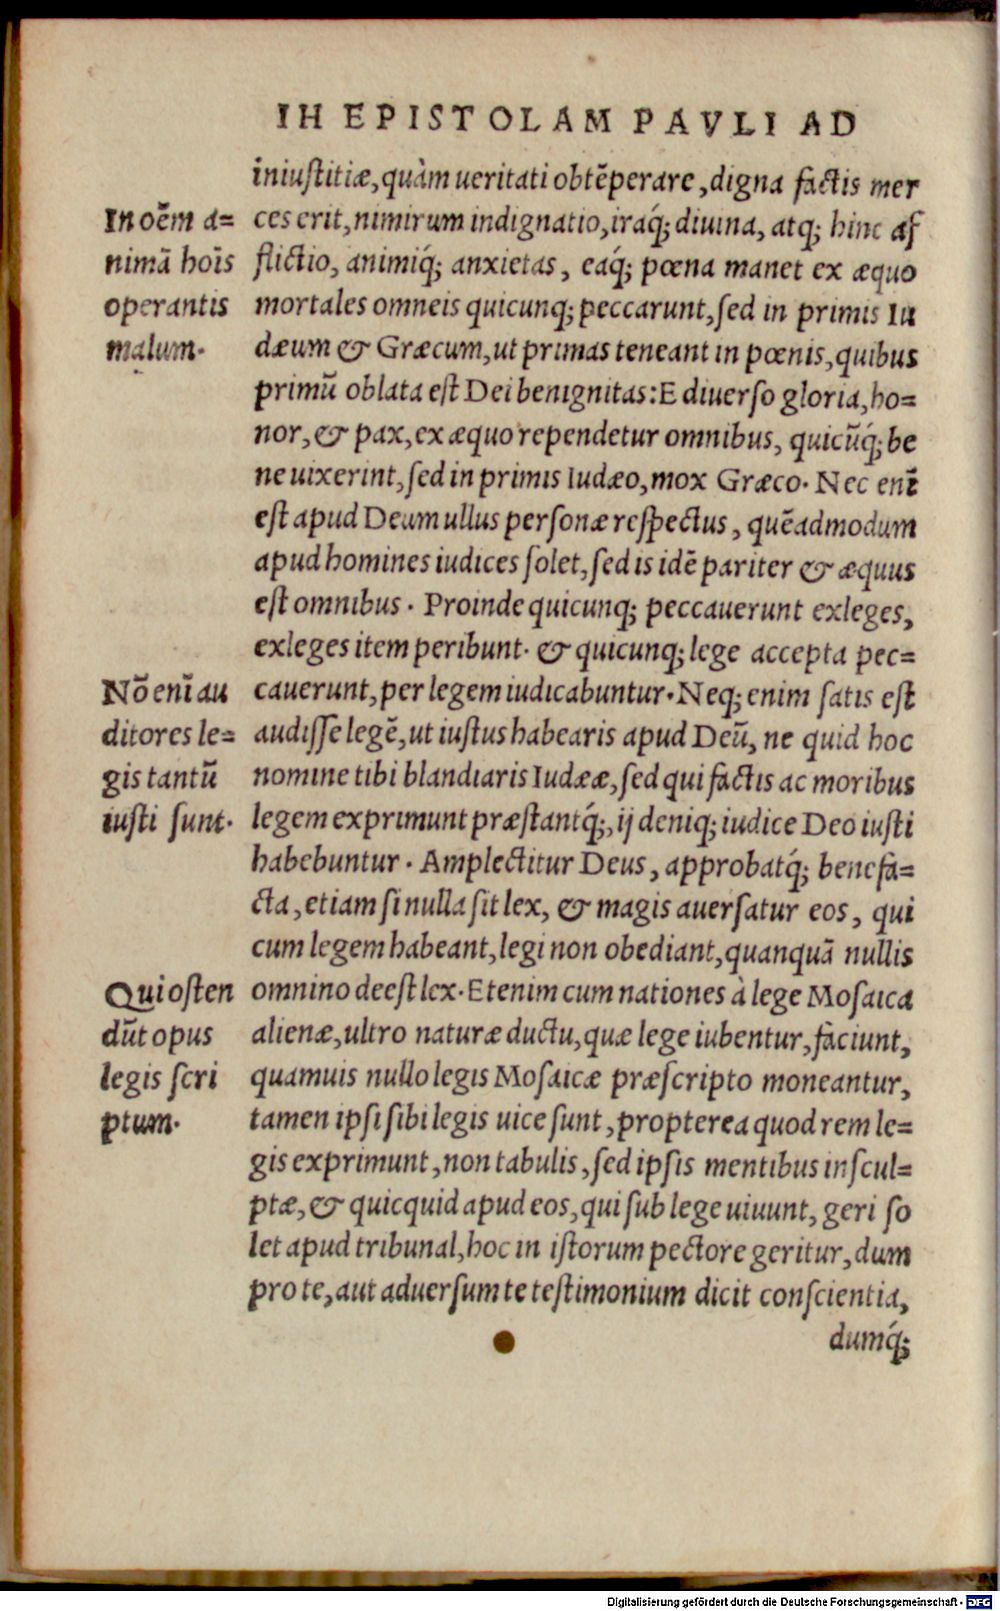 IH EPISTOLAM PAVLI AD
iniustitiæ, quàm ueritati obtēperare, digna factis mer
ces erit, nimirum indignatio, iraq́; diuina, atq; hinc af
flictio, animiq́; anxietas, eáq; pœna manet ex æquo
mortales omneis quicunq; peccarunt, sed in primis Iu
dæum & Græcum, ut primas teneant in pœnis, quibus
primū oblata est Dei benignitas: E diuerso gloria, ho=
nor, & pax, ex æquo rependetur omnibus, quicūq́; be
ne uixerint, sed in primis Iudæo, mox Græco. Nec enī
est apud Deum ullus personæ respectus, quēadmodum
apud homines iudices solet, sed is idē pariter & æquus
est omnibus. Proinde quicunq; peccauerunt exleges,
exleges item peribunt. & quicunq; lege accepta pec=
cauerunt, per legem iudicabuntur. Neq; enim satis est
audisse legē, ut iustus habearis apud Deū, ne quid hoc
nomine tibi blandiaris Iudææ, sed qui factis ac moribus
legem exprimunt præstantq́;, ij deniq; iudice Deo iusti
habebuntur. Amplectitur Deus, approbatq́; benefa=
cta, etiam si nulla sit lex, & magis auersatur eos, qui
cum legem habeant, legi non obediant, quanquā nullis
omnino deest lex. Etenim cum nationes à lege Mosaica
alienæ, ultro naturæ ductu, quæ lege iubentur, faciunt,
quamuis nullo legis Mosaicæ præscripto moneantur,
tamen ipsi sibi legis uice sunt, propterea quod rem le=
gis exprimunt, non tabulis, sed ipsis mentibus inscul=
ptæ, & quicquid apud eos, qui sub lege uiuunt, geri so
let apud tribunal, hoc in istorum pectore geritur, dum
pro te, aut aduersum te testimonium dicit conscientia,
dumq́;
In oēm a=
nimā hoīs
operantis
malum.
Nō enī au
ditores le=
gis tantū
iusti sunt.
Qui osten
dūt opus
legis scri
ptum.
Digitalisierung gefördert durch die Deutsche Forschungsgemeinschaft - DFG